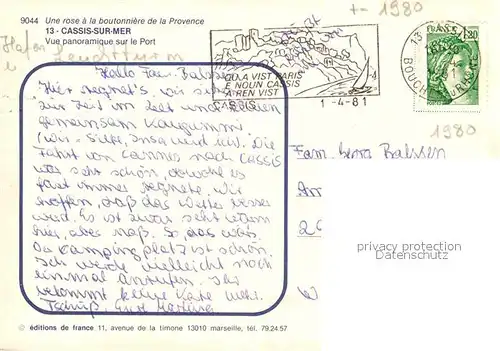 +- 1980
9044 Une rose à la boutonnière de la Provence
13 - CASSIS-SUR-MER
Vue panoramique sur le Port
Hafen
u Leuchtturm
QU A VIST PARIS
E NOUN CASSIS
A REN VIST
CASSIS
1-4-81
13
BOUCHES
1,80
1980
Hallo Fam. Balssen
Hier regnet's, wir sitzen
zur Zeit im Zelt und kauen
gemeinsam Kaugummi
(wir = Silke, Insa und ich). Die
Fahrt von Cannes nach CASSIS
war sehr schön, obwohl es
fast immer regnete. Wir
hoffen, daß das Wetter besser
wird. Es ist zwar sehr warm
hier, aber naß. So, das war's.
Der Campingplatz ist schön.
Ich werde vielleicht noch
einmal anrufen. Ihr
bekommt keine Karte mehr.
Tschüß, Eure
Fam. Balssen
Am
29
privacy protection
watermark
© éditions de france 11, avenue de la timone 13010 marseille, tél. 79.24.57